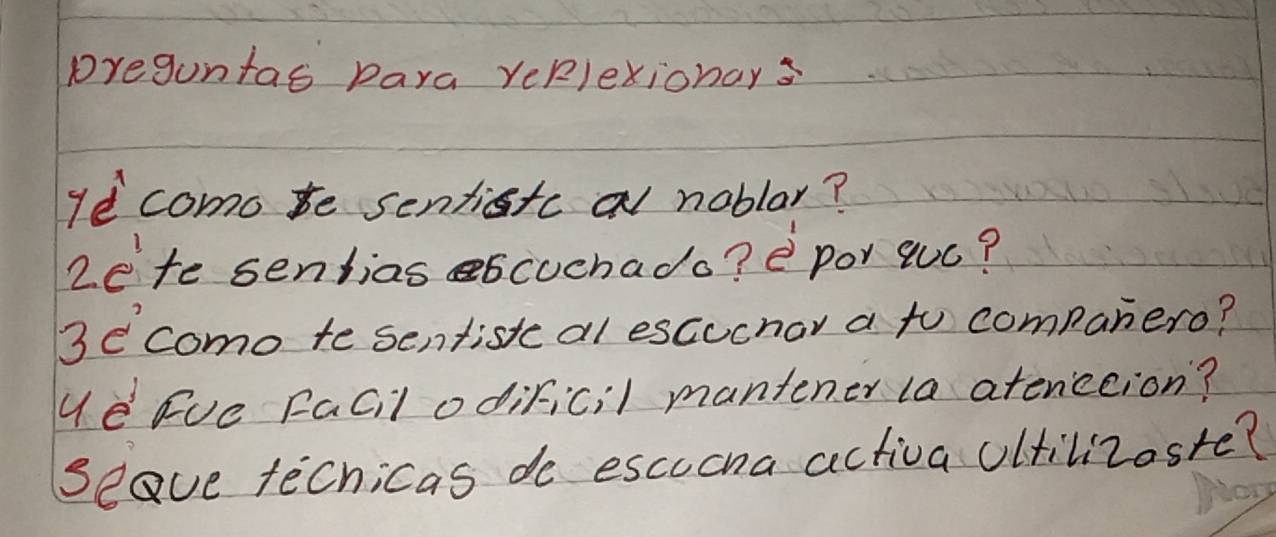 preguntas para reflexionar:
1¿ como te sentiste al hablar?
2¿ te sentias escuchado? ¿ por que?
3¿ como te sentiste al escuchar a tu compañero?
4¿ Fue Facil o diFicil mantener la atenccion?
5¿ Que técnicas de escucha activa ultilizaste?